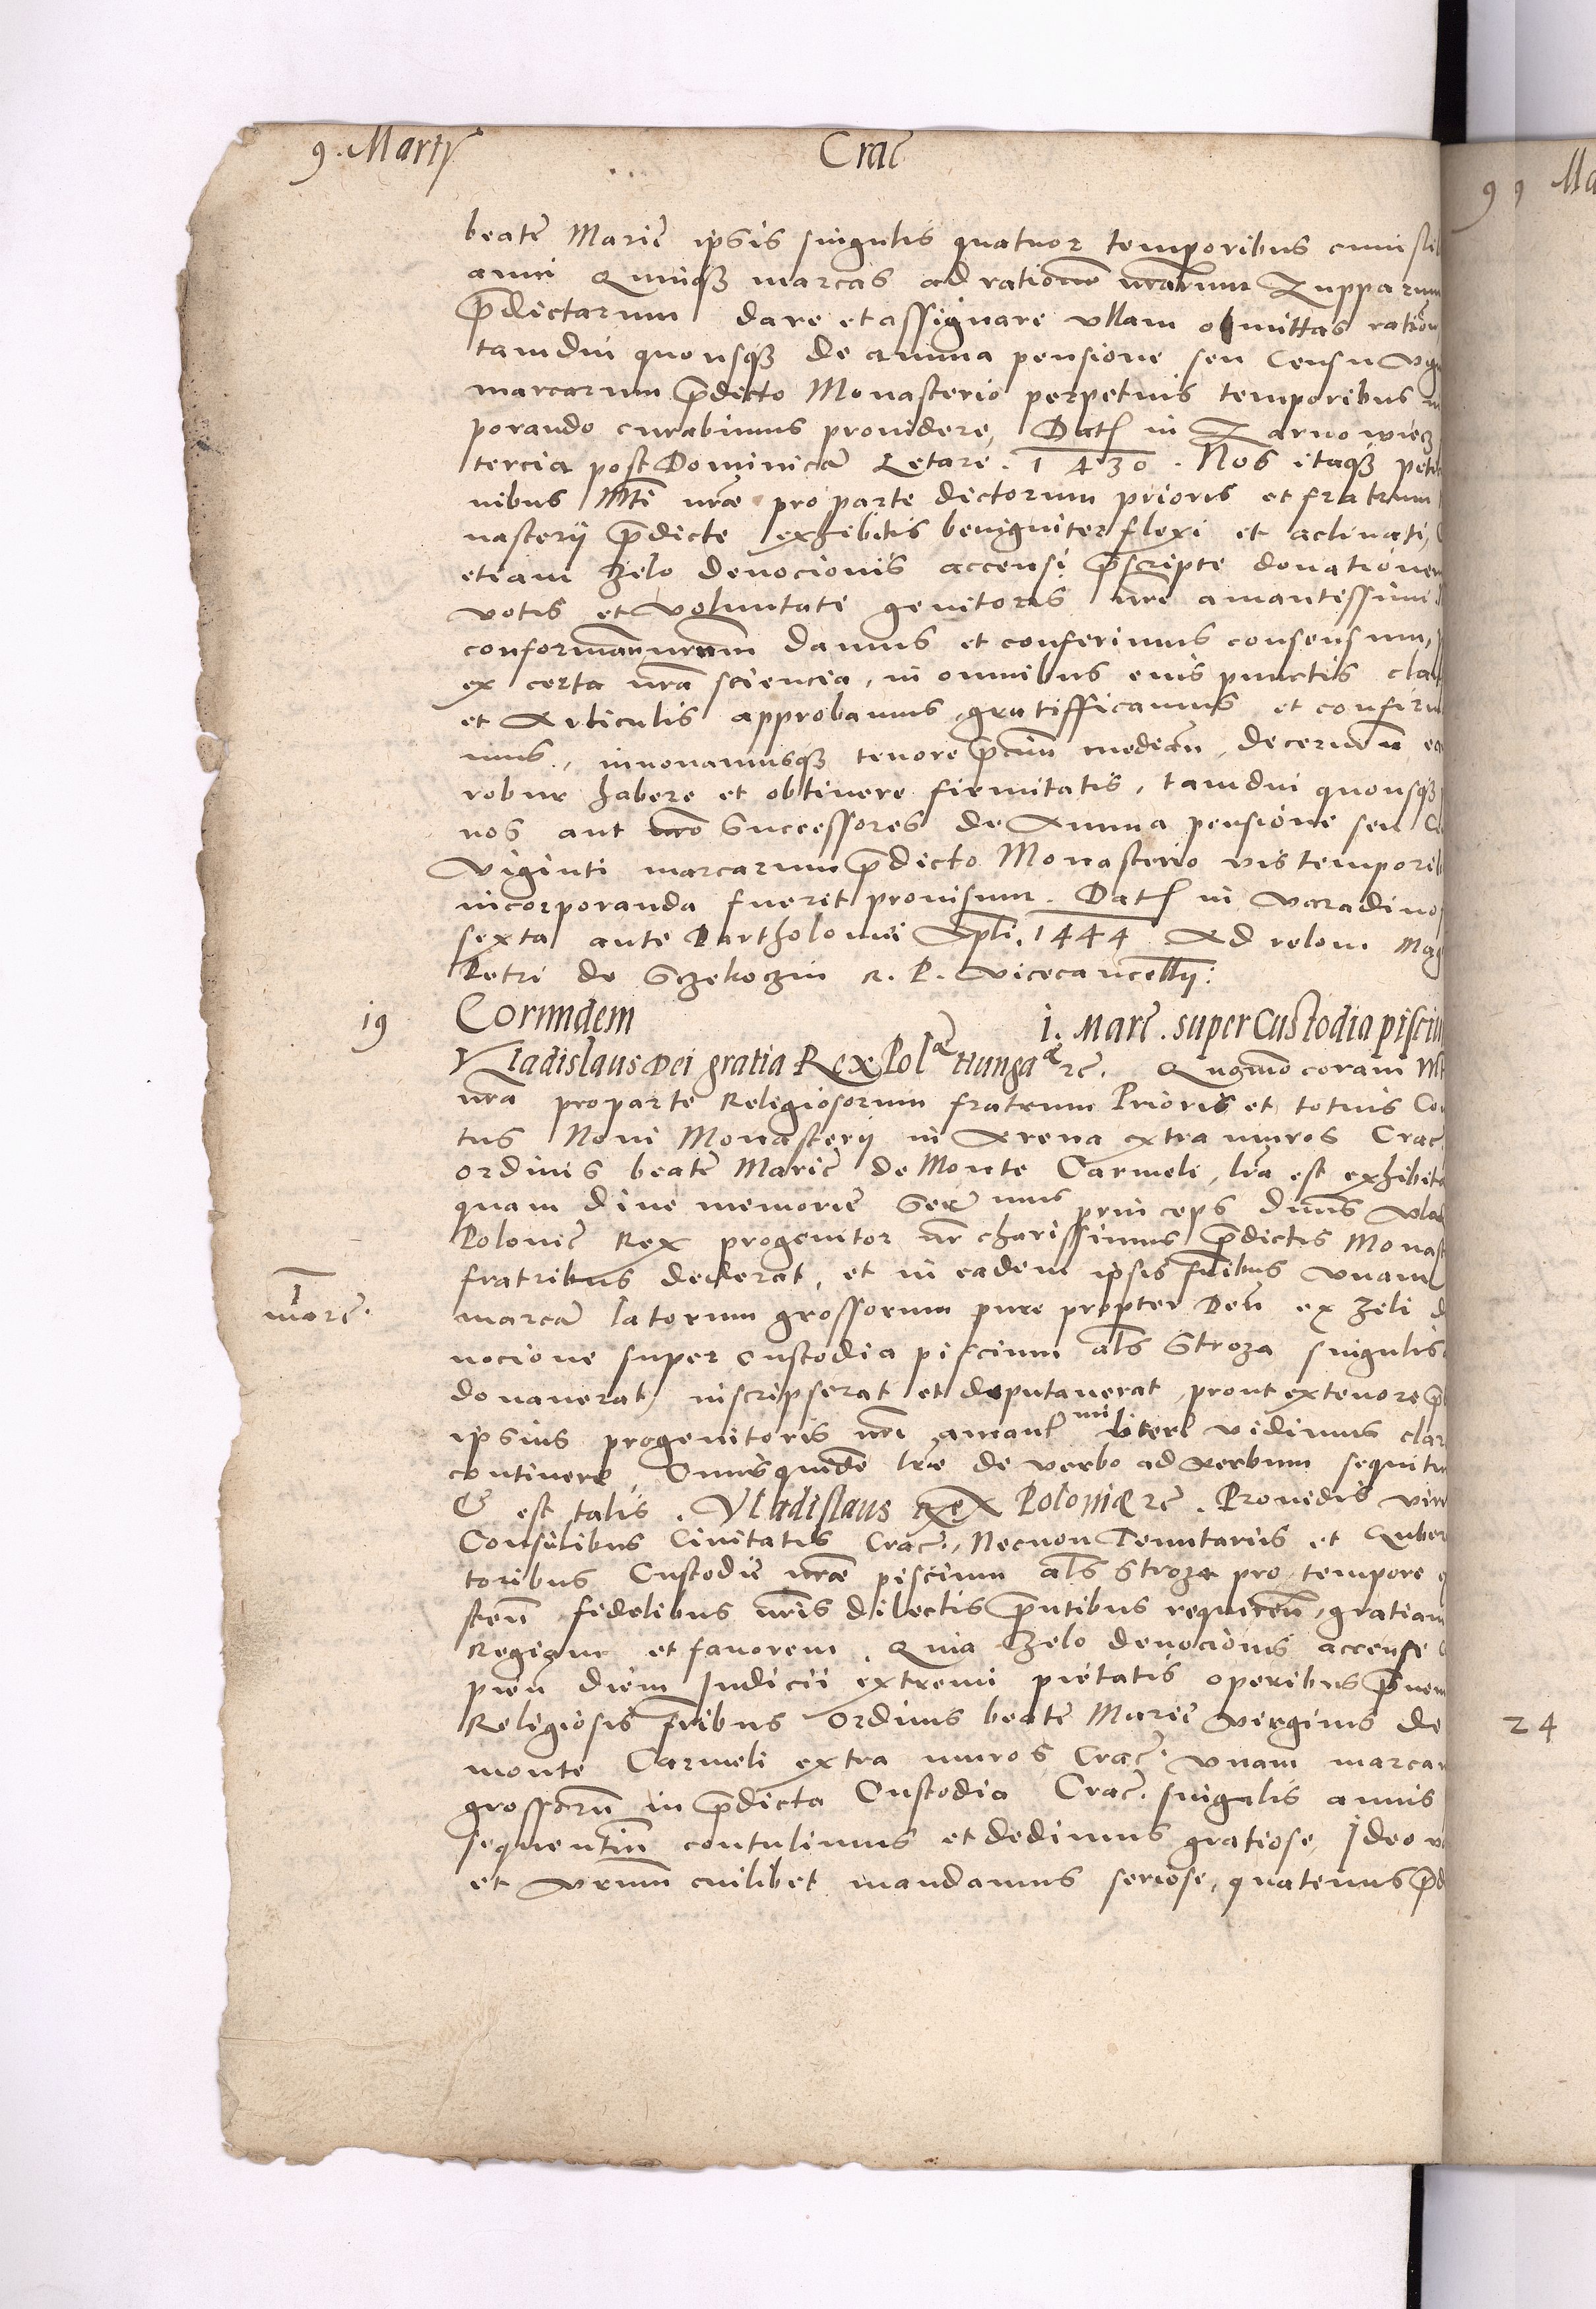 9. Martij Crac̃
beatę Marię ipsis singulis quatuor temporibus cuiusli
anni Quinqȝ marcas ad rationẽ nrãrum Zupparum
p̃dictarum dare et assignare ullam obmittas ratioñ
tamdiu quousqȝ de annua pensione seu Censu vigi
marcarum p̃dicto Monasterio perpetuis temporibus in
porando curabimus providere, Dat̃ in Zarnowiecz
tercia post Dominicã Letare. 1430. Nos itaqȝ petit
nibus Mti nrãe pro parte dictorum prioris et fratrum
nasterij p̃dicte exhibitis benigniter flexi et aclinati,
etiam zelo devocionis accensi p̃scripte donationem
votis et voluntate genitoris nri amantissimi
conformañ nrãm damus et conferimus consensum,
ex certa nrã sciencia, in omnibus eius punctis clau
et Articulis approbamus, gratifficamus et confirm
mus, innovamusqȝ tenore p̃ntiũ medieñ, decerneñ ea
robur habere et obtinere firmitatis, tamdiu quousqȝ
nos aut nrõs Successores de Annua pensione seu Ce
Viginti marcarum p̃dicto Monasterio vis temporib
incorporanda fuerit provisum. Dat̃ in Varadino
sexta ante Bartholomei Apli. 1444 Ad relom Mag
Petri de Sczekoczin R. P. Vicecancellij:
19 Eorundem 1. Marc̃. super Custodia pisciu
Vladislaus Dei gratia Rex Pol æ Hunga æ rc̃. Quomõ coram Mt
nrã pro parte Religiosorum fratrum Prioris et totius Con
tus Novi Monasterij in Arena extra muros Crac̃
ordinis beatę Marię de Monte Carmeli, lrã est exhibita
quam dive memorie Ser mus princeps Dñus Vla
Polonię Rex progenitor nr̃ charissimus p̃dictis Monast
fratribus dederat, et in eadem ipsis fribus Vnam
1
marc̃.
marcã latorum grossorum pure propter Deũ ex zeli d
vocione super custodia piscium als Stroza singulis
donaverat, inscripserat et deputaverat, prout ex tenore p̃
ipsius progenitoris nri amant mi literẽ vidimus clar
continere, Cuius quidẽ lrẽ de verbo ad verbum sequitur
& est talis. Vladislaus Rex Poloniæ rc̃. Providis vir
Consulibus Civitatis Crac̃, Necnon Tenutariis et Guber
toribus Custodię nrãe piscium als Stroza pro tempore e
steñ fidelibus nris dilectis p̃ntibus requireñ, gratiam
Regiam et favorem. Quia Zelo devocionis accense
pieñ diem Iudicii extremi pietatis operibus p̃ven
Religiosis fribus Ordinis beatę Marię virginis de
monte Carmeli extra muros Crac̃. Vnam marcam
grossorũ in p̃dicta Custodia Crac̃. singulis annis
sequentiũ contulimus et dedimus gratiose, Ideo v
et vrũm cuilibet mandamus seriose, quatenus p̃d
9 9 Ma
24